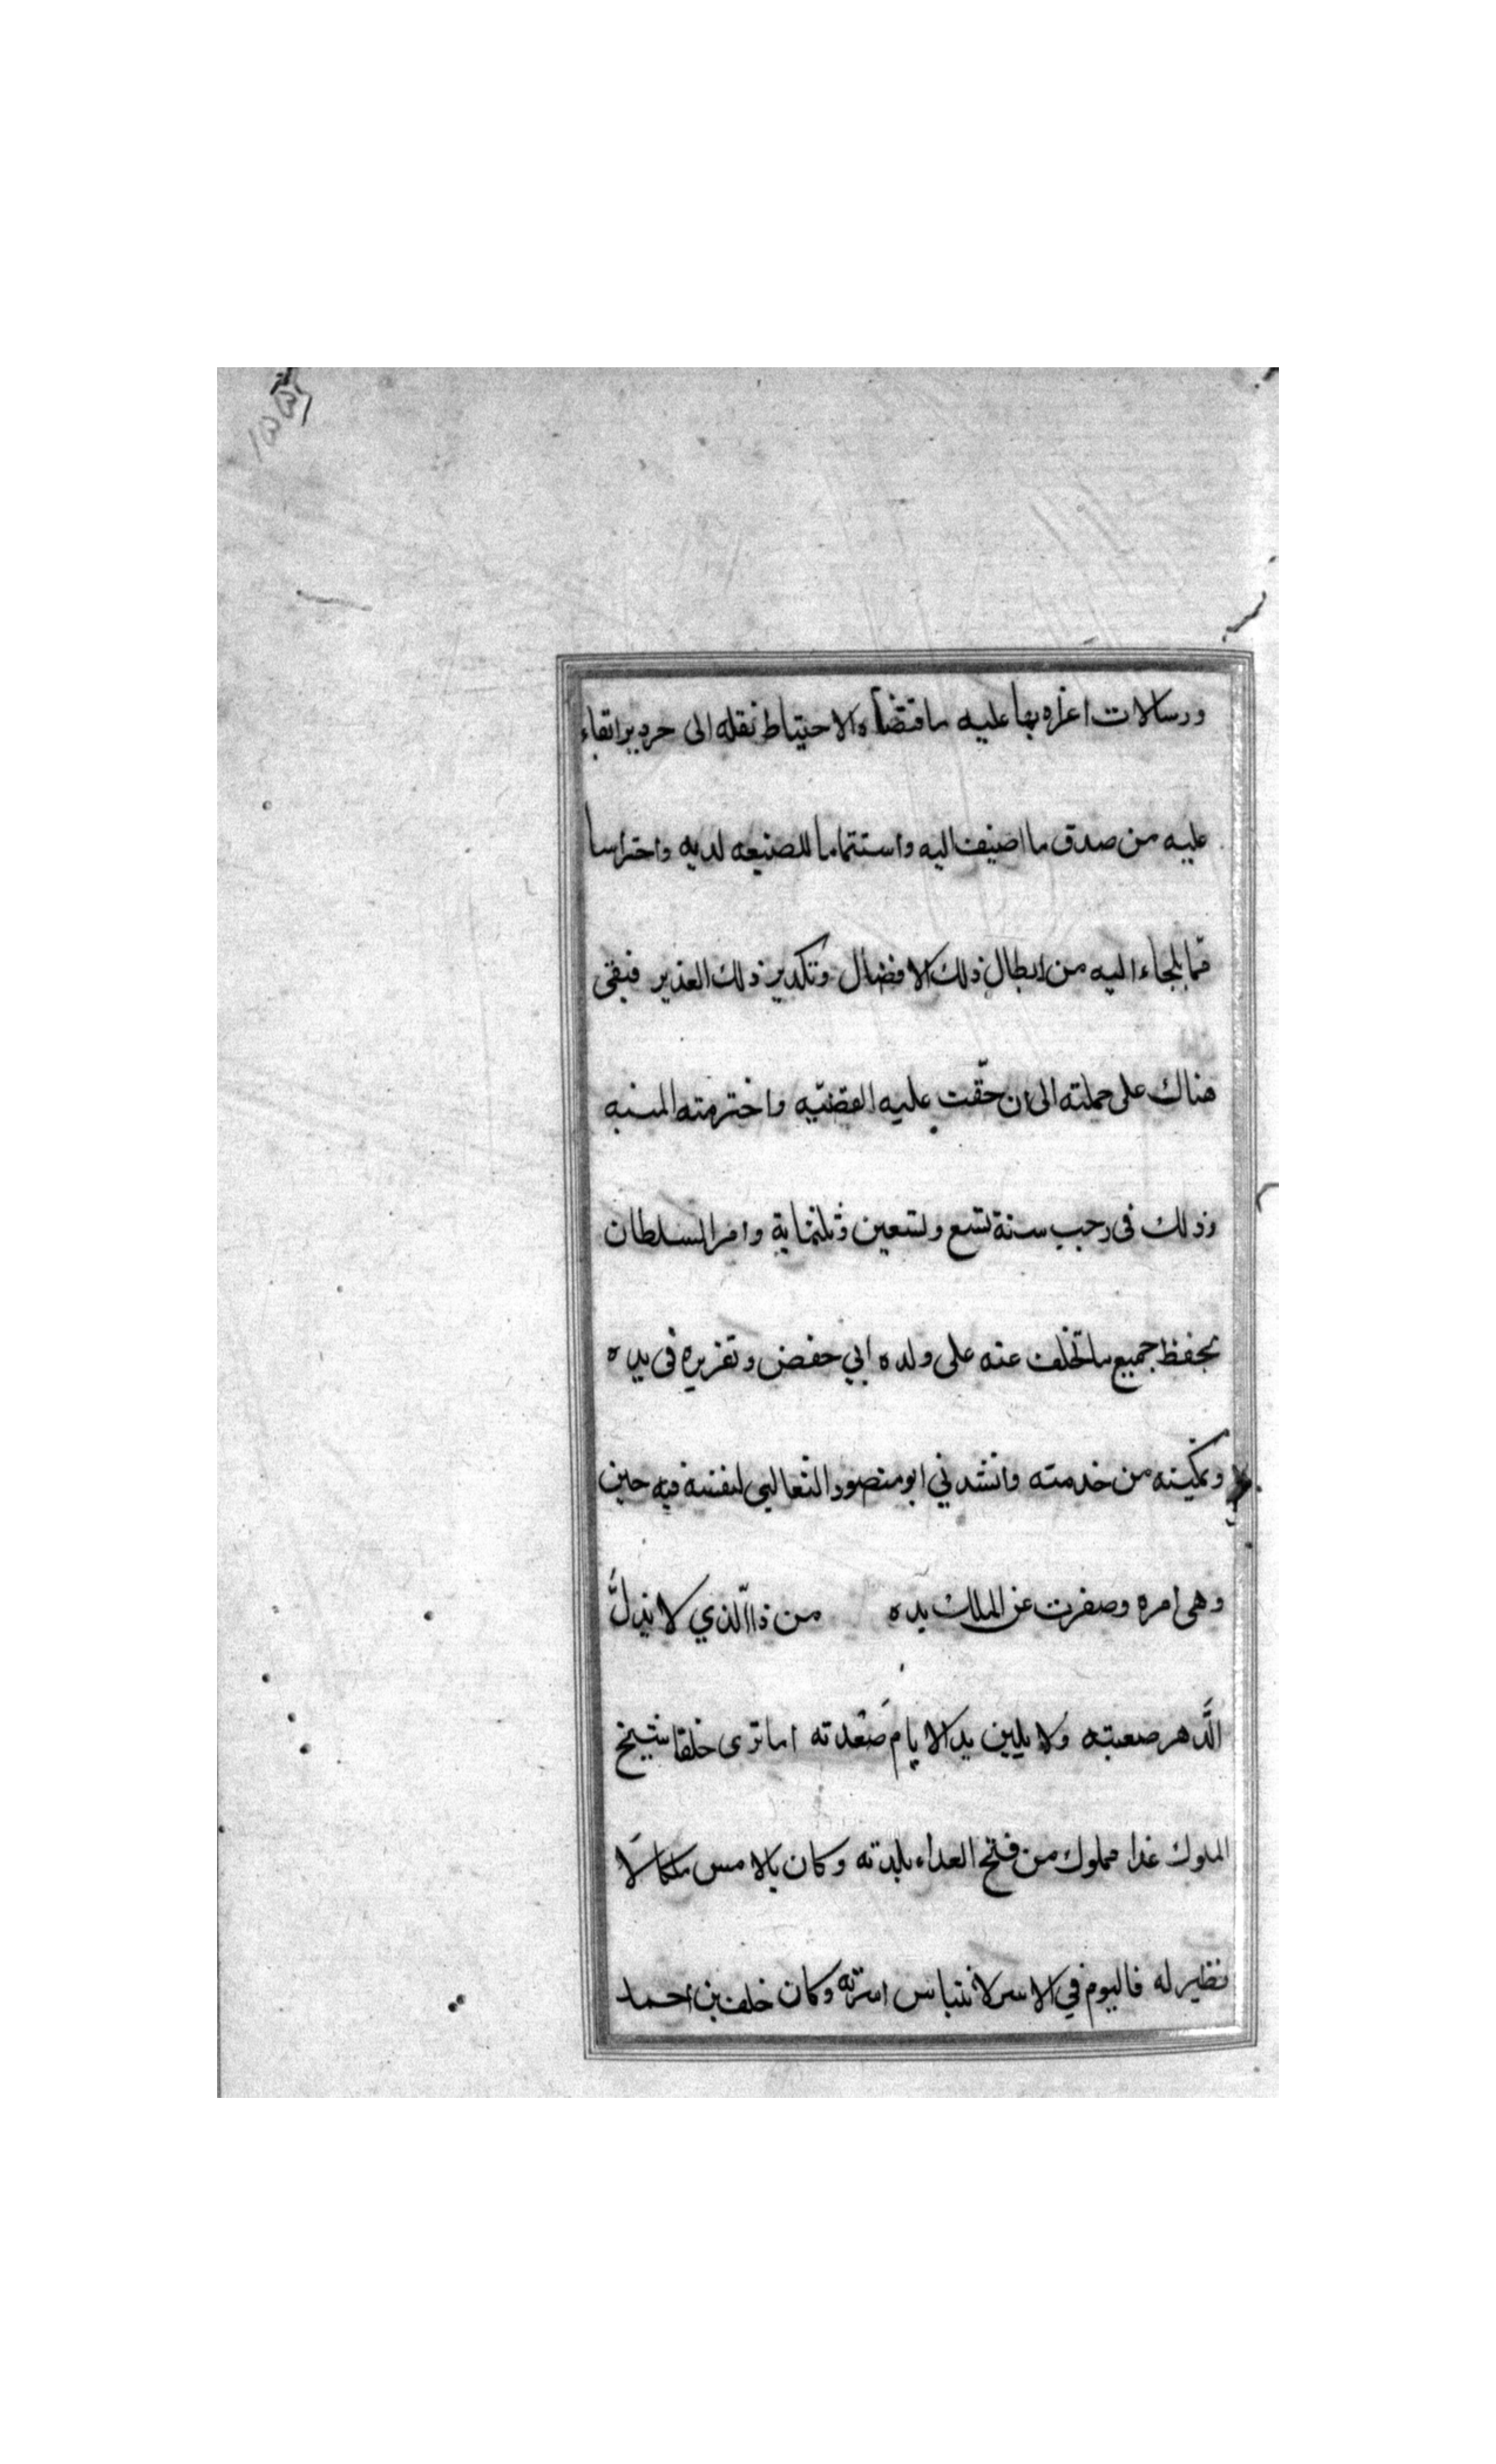 ورسالات اغراه بها عليه ما اقتضاه الاحتياط نقله الى حرديز اتقاء
عليه من صدق ما اضيف اليه واستتماما للصنيعه لديه واحتراسا
مما يلجاء اليه من ابطال ذلك الافضال وتكدير ذلك الغدير فبقى
هناك على جملته الى ان حقّت عليه القضيّه واخترمته المنيه
وذلك فى رجب سنة تسع وتسعين وثلثماية وامر السلطان
بحفظ جميع ما تخلف عنه على ولده ابي حفص وتقريره فى يده
وتمكينه من خدمته وانشدني ابو منصور الثعالبى لنفسه فيه حين
وهى امره وصفرت عن الملك يده من ذا الّذي لا يذلُّ
الدَّهر صعبته ولا يلين يد الايام صَعدته اما ترى خلفا شيخ
الملوك غدا مملوك من فتح العداء بلدته وكان بالامس ملكا لا
نظير له فاليوم في الاسر لا ينتاس اسرته وكان خلف بن احمد